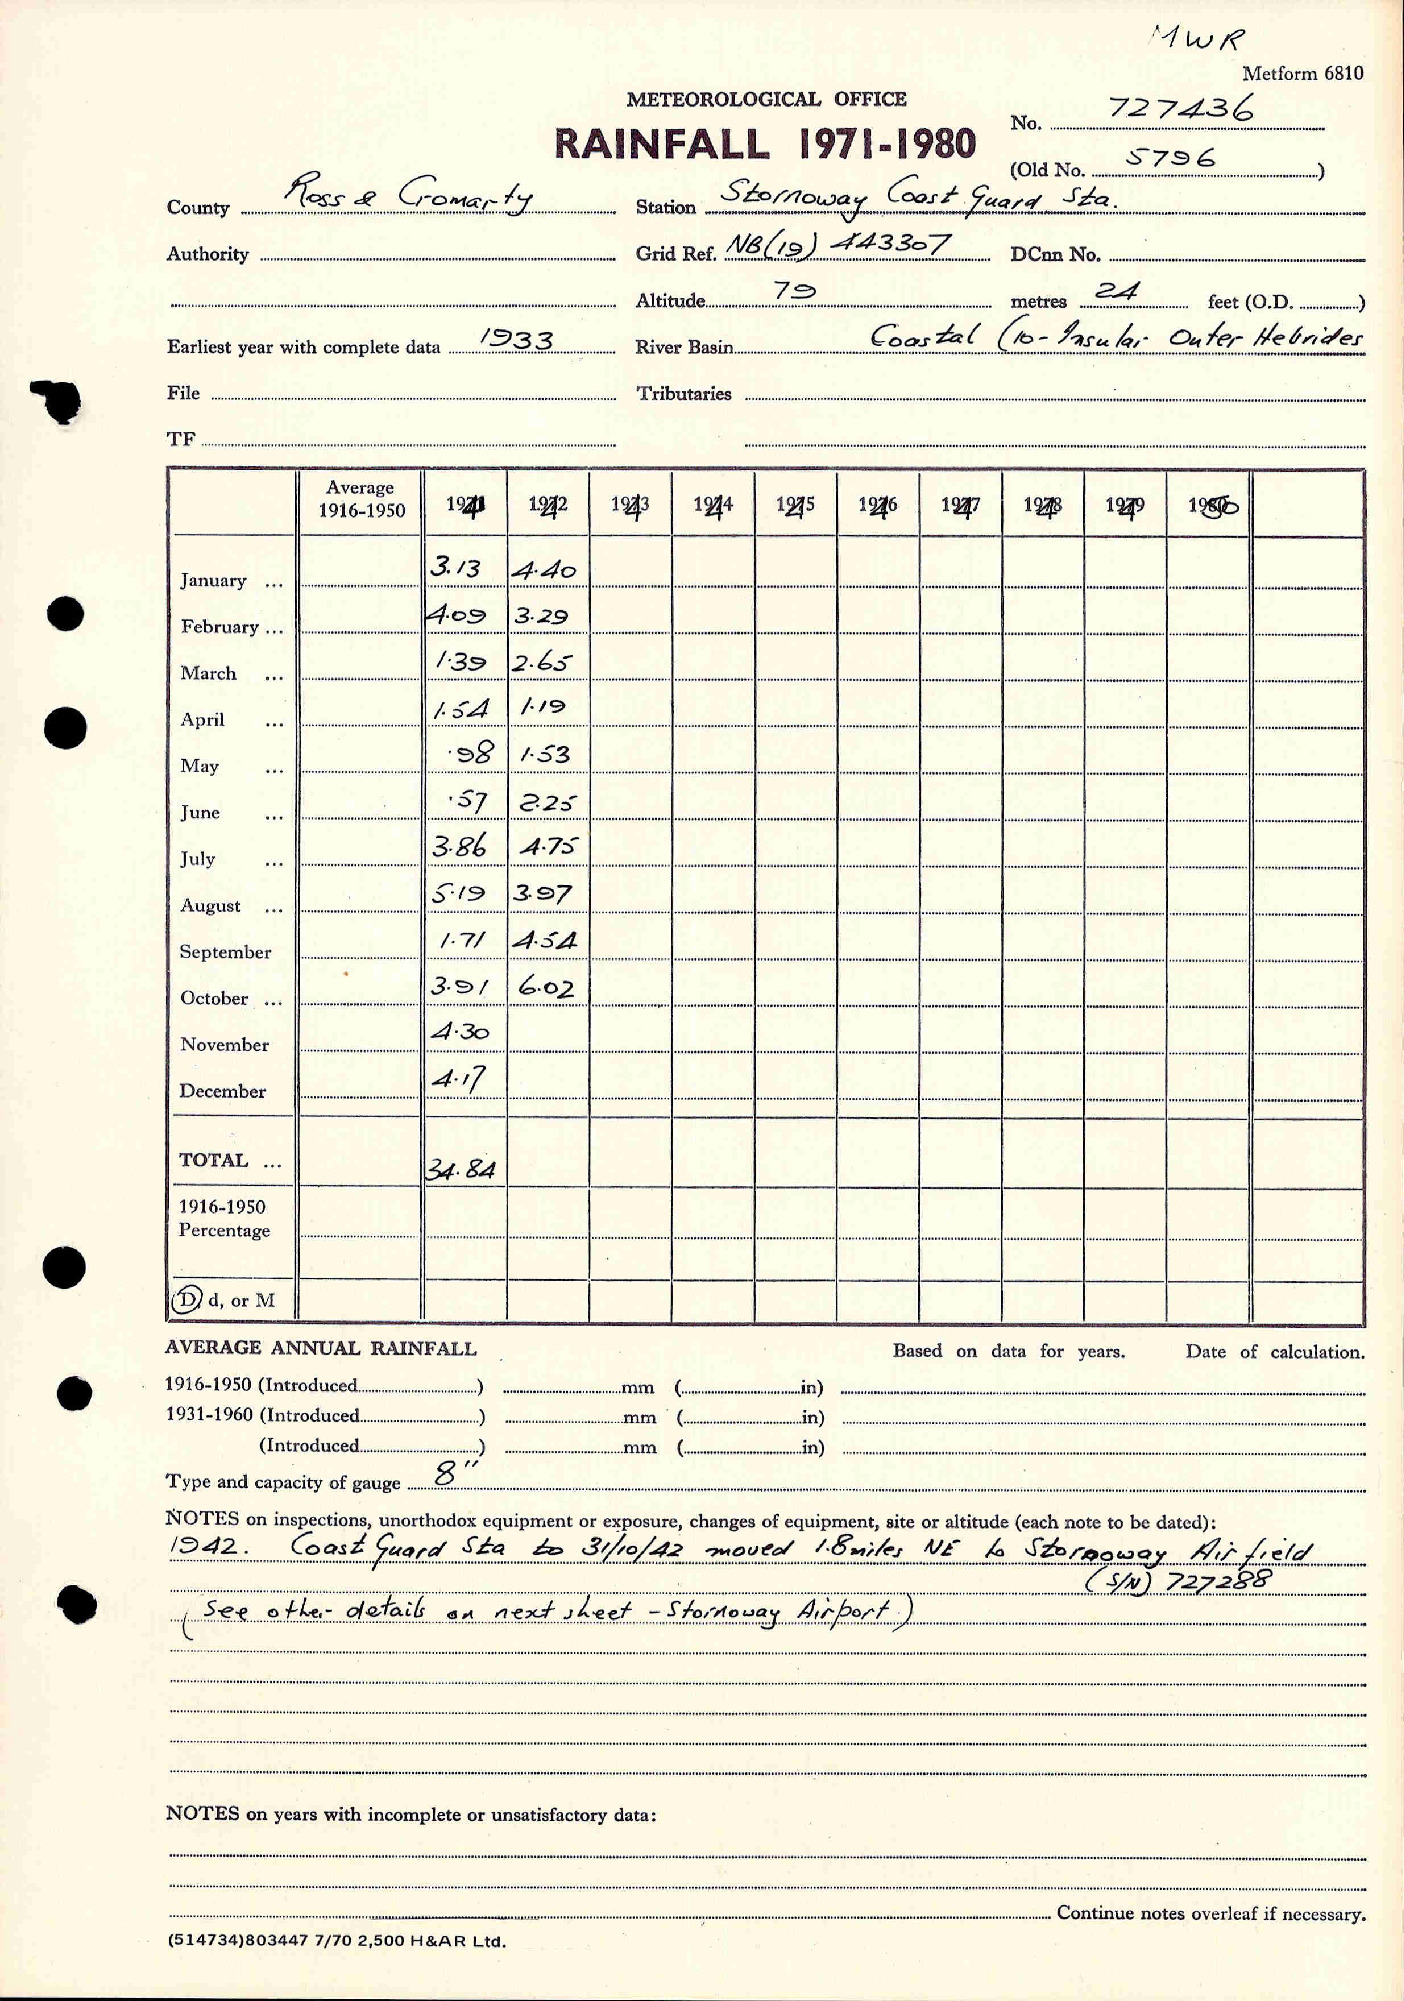 MWR
Metform 6810
METEOROLOGICAL OFFICE
RAINFALL 1971-1980
No. 727436
(Old No. 5796)
County Ross & Cromarty Station Stornoway Coast Guard Sta.
Authority Grid Ref. NB(19) 443307 DCnn No.
Altitude 79 metres 24 feet (O.D. )
Earliest year with complete data 1933 River Basin Coastal (10-Insular Outer Hebrides
File Tributaries
TF
Average 1916-1950 1941 1942 1943 1944 1945 1946 1947 1948 1949 1950
January ... 3.13 4.40
February ... 4.09 3.29
March ... 1.39 2.65
April ... 1.54 1.19
May ... .98 1.53
June ... .57 2.25
July ... 3.86 4.75
August ... 5.19 3.97
September 1.71 4.54
October ... 3.91 6.02
November 4.30
December 4.17
TOTAL ... 34.84
1916-1950
Percentage
D, d, or M
AVERAGE ANNUAL RAINFALL Based on data for years. Date of calculation.
1916-1950 (Introduced ) mm ( in)
1931-1960 (Introduced ) mm ( in)
(Introduced ) mm ( in)
Type and capacity of gauge 8"
NOTES on inspections, unorthodox equipment or exposure, changes of equipment, site or altitude (each note to be dated):
1942. Coast Guard Sta to 31/10/42 moved 1.8 miles NE to Stornoway Airfield
(S/N) 727288
(See other details on next sheet - Stornoway Airport)
NOTES on years with incomplete or unsatisfactory data:
Continue notes overleaf if necessary.
(514734)803447 7/70 2,500 H&AR Ltd.